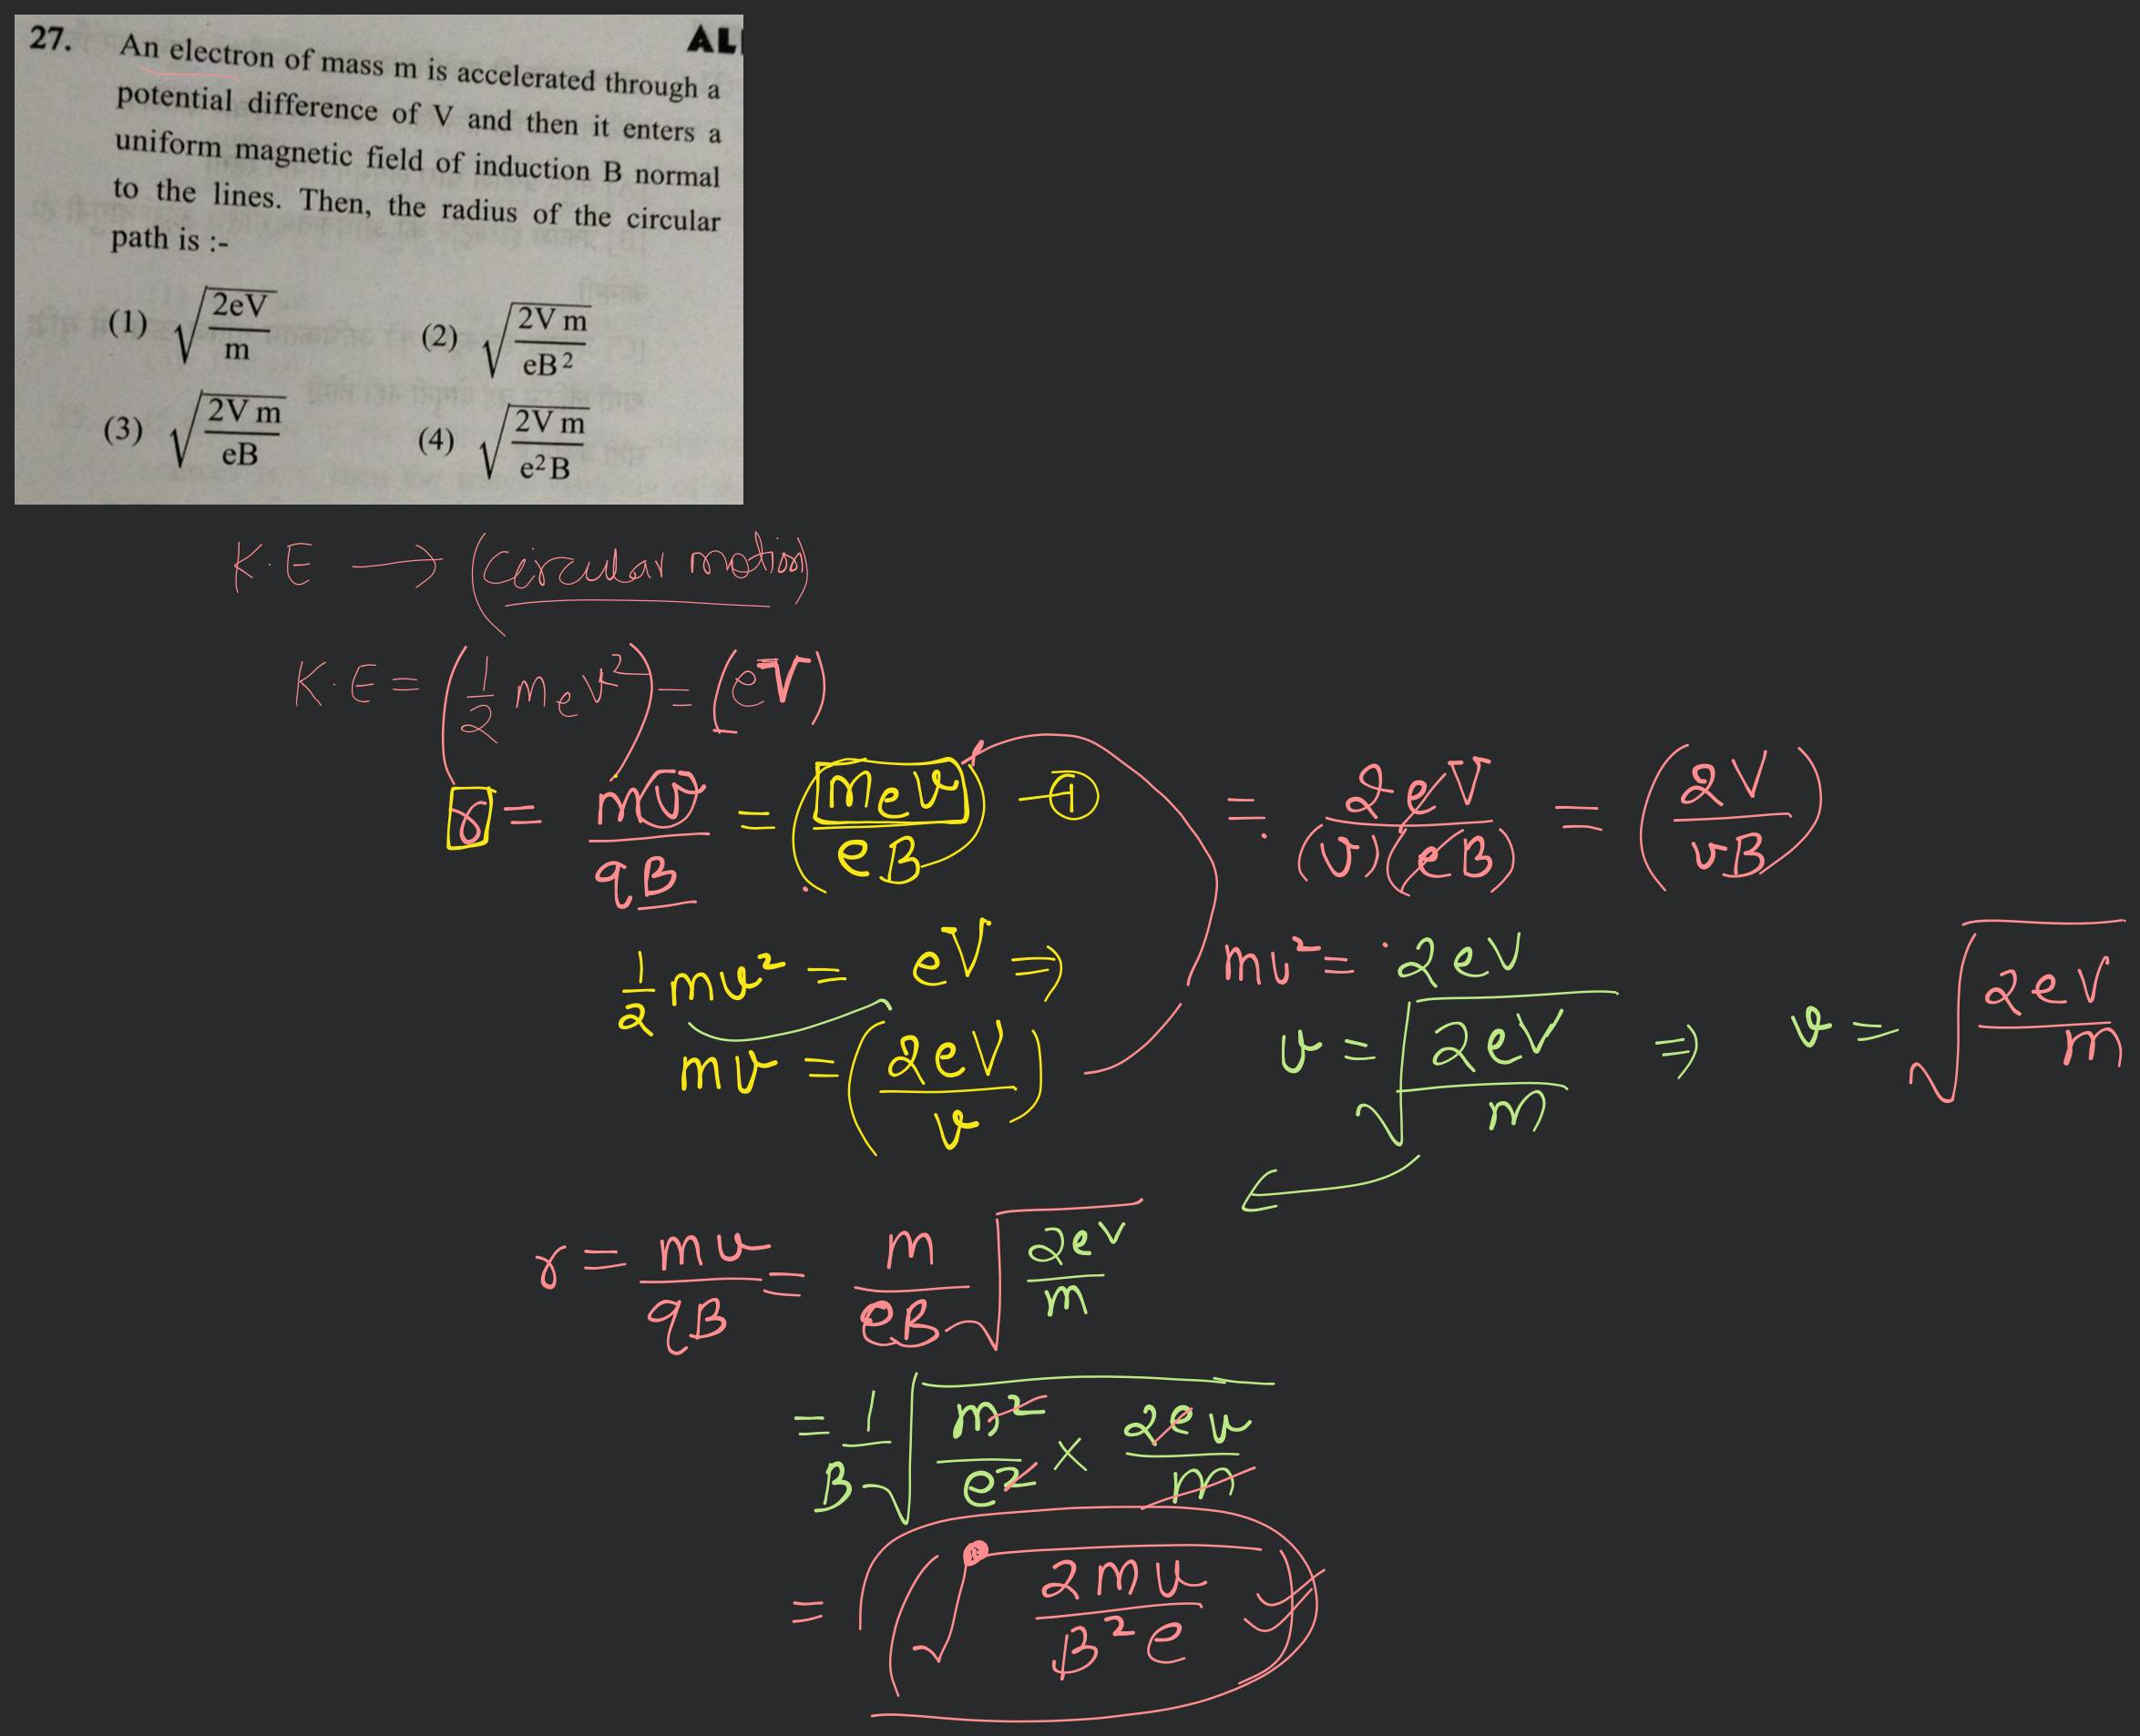 27.
ALL
An electron of mass m is accelerated through a
potential difference of V and then it enters a
uniform magnetic field of induction B normal
to the lines. Then, the radius of the circular
path is :-
(1) √(2eV/m) (2) √(2V m/eB²)
(3) √(2V m/eB) (4) √(2V m/e²B)
K.E → (circular motion)
K.E = (1/2 mₑv²) = (eV)
r = mv/qB = (mₑv/eB) — ① = 2eV/(v)(eB) = (2V/vB)
1/2 mv² = eV ⇒ mv² = 2eV
mv = (2eV/v) v = √(2eV/m) ⇒ v = √(2eV/m)
r = mv/qB = m/eB √(2eV/m)
= 1/B √(m²/e² × 2ev/m)
= (√(2mv/B²e))